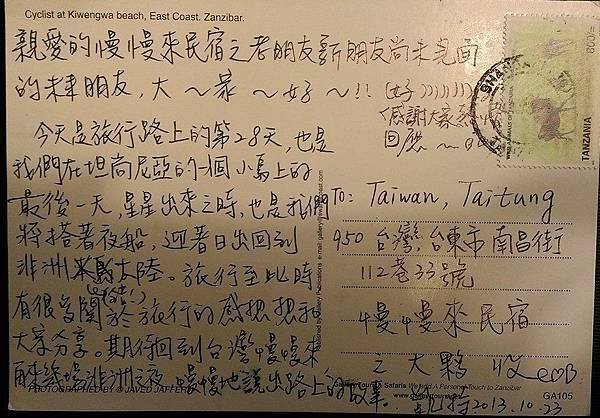 Cyclist at Kiwengwa beach, East Coast. Zanzibar.
親愛的慢慢來民宿之老朋友新朋友尚未見面
的未來朋友，大～家～好～!!
(好)))))))
感謝大家熱
回應～
今天是旅行路上的第28天，也是
我們在坦尚尼亞的一個小島上的
最後一天，星星出來之時，也是我們
將搭著夜船，迎著日出回到
非洲大陸。旅行至此時
有很多關於旅行的感想想和
大家分享。期待回到台灣慢慢來
來幾場非洲之夜，慢慢地說出路上的故事。
800/=
TANZANIA
To: Taiwan, Taitung
950 台灣台東市南昌街
112巷33號
慢慢來民宿
之大夥 收
2013.10.23
PHOTOGRAPHED BY © JAVED JAFFERJI
Gallery Tours & Safaris We Add A Personal Touch to Zanzibar
www.gallerytours
GA105